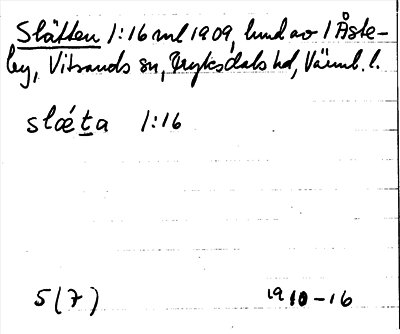 Slätten 1:16 rul 1909, hund av 1 Åste-
by, Vitsands sn, Fryksdals hd, Värml. l.
slǽta 1:16
5(7) 1910-16